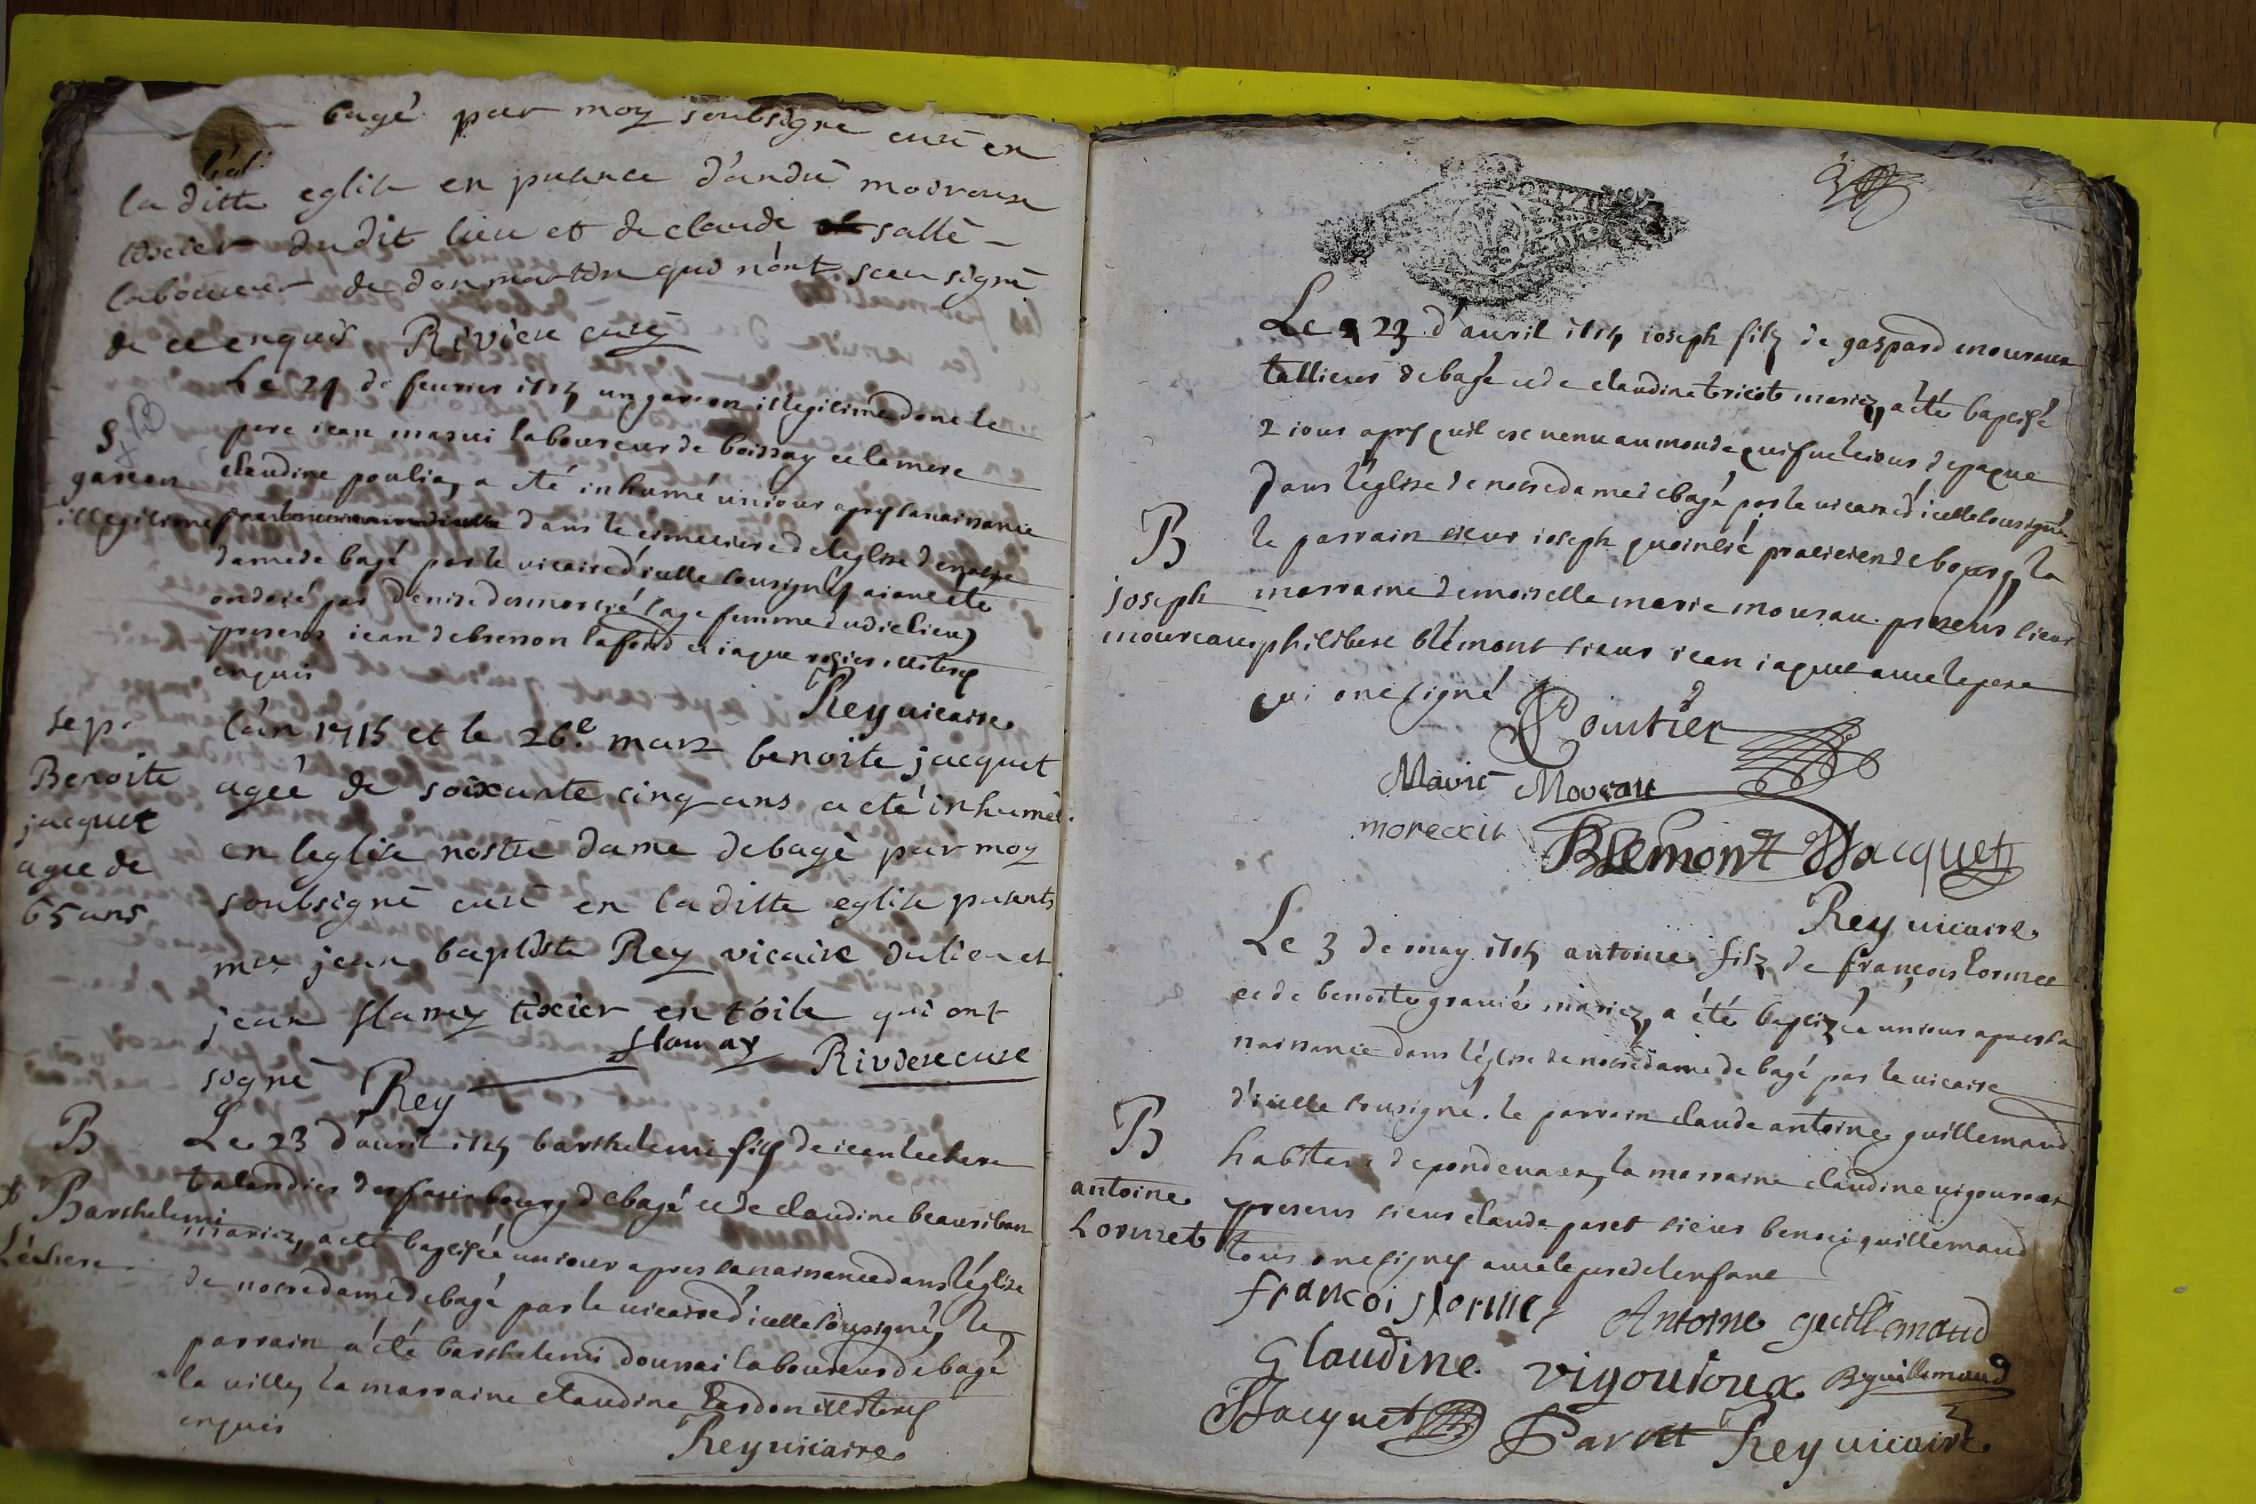 bagé par moy soubsigné curé en
la ditte eglise en pnance d'andré moiroux
texier du dit lieu et de claude sallé
laboureur de donmartin qui n'ont sceu signé
de ce enquis Riviere curé
Le 24 de feurier 1715 un garcon illegitime dont le
pere iean masui laboureur de boissay et la mere
S
garcon
illegitime
claudine poulia, a été inhumé un iour apres sa naissance
dans le cimetiere de l'eglise de notre
dame de bagé par le vicaire d'icelle sousigné aiant été
ondoié par denise desmarié sage femme dudit lieu
presens iean debrenon lafond et iaque rosier illiterés
enquis
Rey vicaire
sep.
Benoite
jacquet
agee de
65 ans
l'an 1715 et le 26e mars benoite jacquet
agée de soixante cinq ans a eté inhumée
en leglise nostre dame de bagé par moy
soubsigné curé en la ditte eglise presents
mre jean baptiste Rey vicaire du lieu et
jean flamy texier en toile qui ont
signé Rey flamay Riviere curé
B
Barthelemi
Léchere
Le 23 d'auril 1715 barthelemi fils de iean lechere
talandier des fauxbourg de bagé et de claudine beauriban
mariez, a eté baptisée un iour apres sa naissance dans l'église
de notre dame de bagé par le vicaire d'icelle sousigné, le
parrain a été barthelemi dounai laboureur de bagé
la ville, la marraine claudine lardon illiterés
enquis
Rey vicaire
Le 23 d'auril 1715 ioseph filz de gaspard moureaux
tallieur de bagé et de claudine tricot mariez, a été baptisé
2 iours apres quil est venu au monde qui fut le iour de paque
dans l'église de notre dame de bagé par le vicaire d'icelle sousigné
B
joseph
moureaux
le parrain sieur ioseph praticien de bourg, la
marraine demoiselle marie moureau. presens sieur
philibert blémont sieur iean iaquet avec le pere
qui ont signé
Marie Moreau
Blemont Jacquet
Rey vicaire
Le 3 de may 1715 antoine filz de francois lormet
et de benoite gravié mariez, a été baptizé un iour apres sa
naissance dans l'église de notre dame de bagé par le vicaire
d'icelle sousigné. le parrain claude antoine guillemaud
B
antoine
Lormet
habitant de pondevaux, la marraine claudine vigouroux
presens sieur claude paret sieur benoi guillemaud
tous ont signés avec le pere de lenfant
francois lormet Antoine guillemaud
Glaudine vigouroux Bguillemaud
Jacquet Parett Rey vicaire